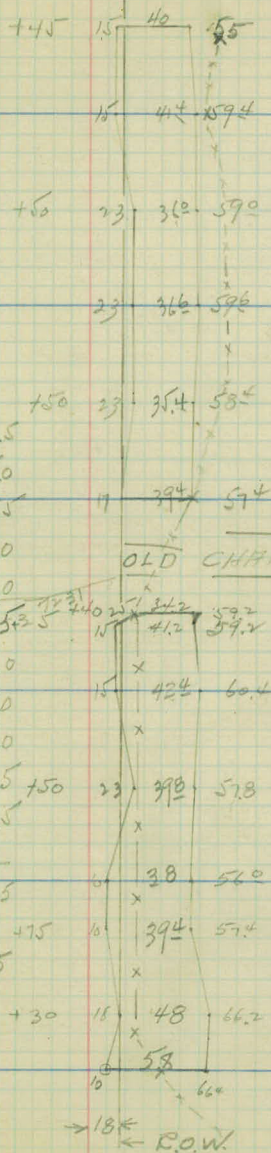 +45 15 40 55
15 41.4 59.4
+50 23 36.0 59.0
23 36.6 59.6
+50 23 35.4 58.4
17 39.4 57.4
OLD
34.2 59.2
15 41.2 59.2
15 42.4 60.4
+50 23 39.8 57.8
38 56.0
+75 10 39.4 57.4
+30 18 48 66.2
58
10 66.4
18
R.O.W.